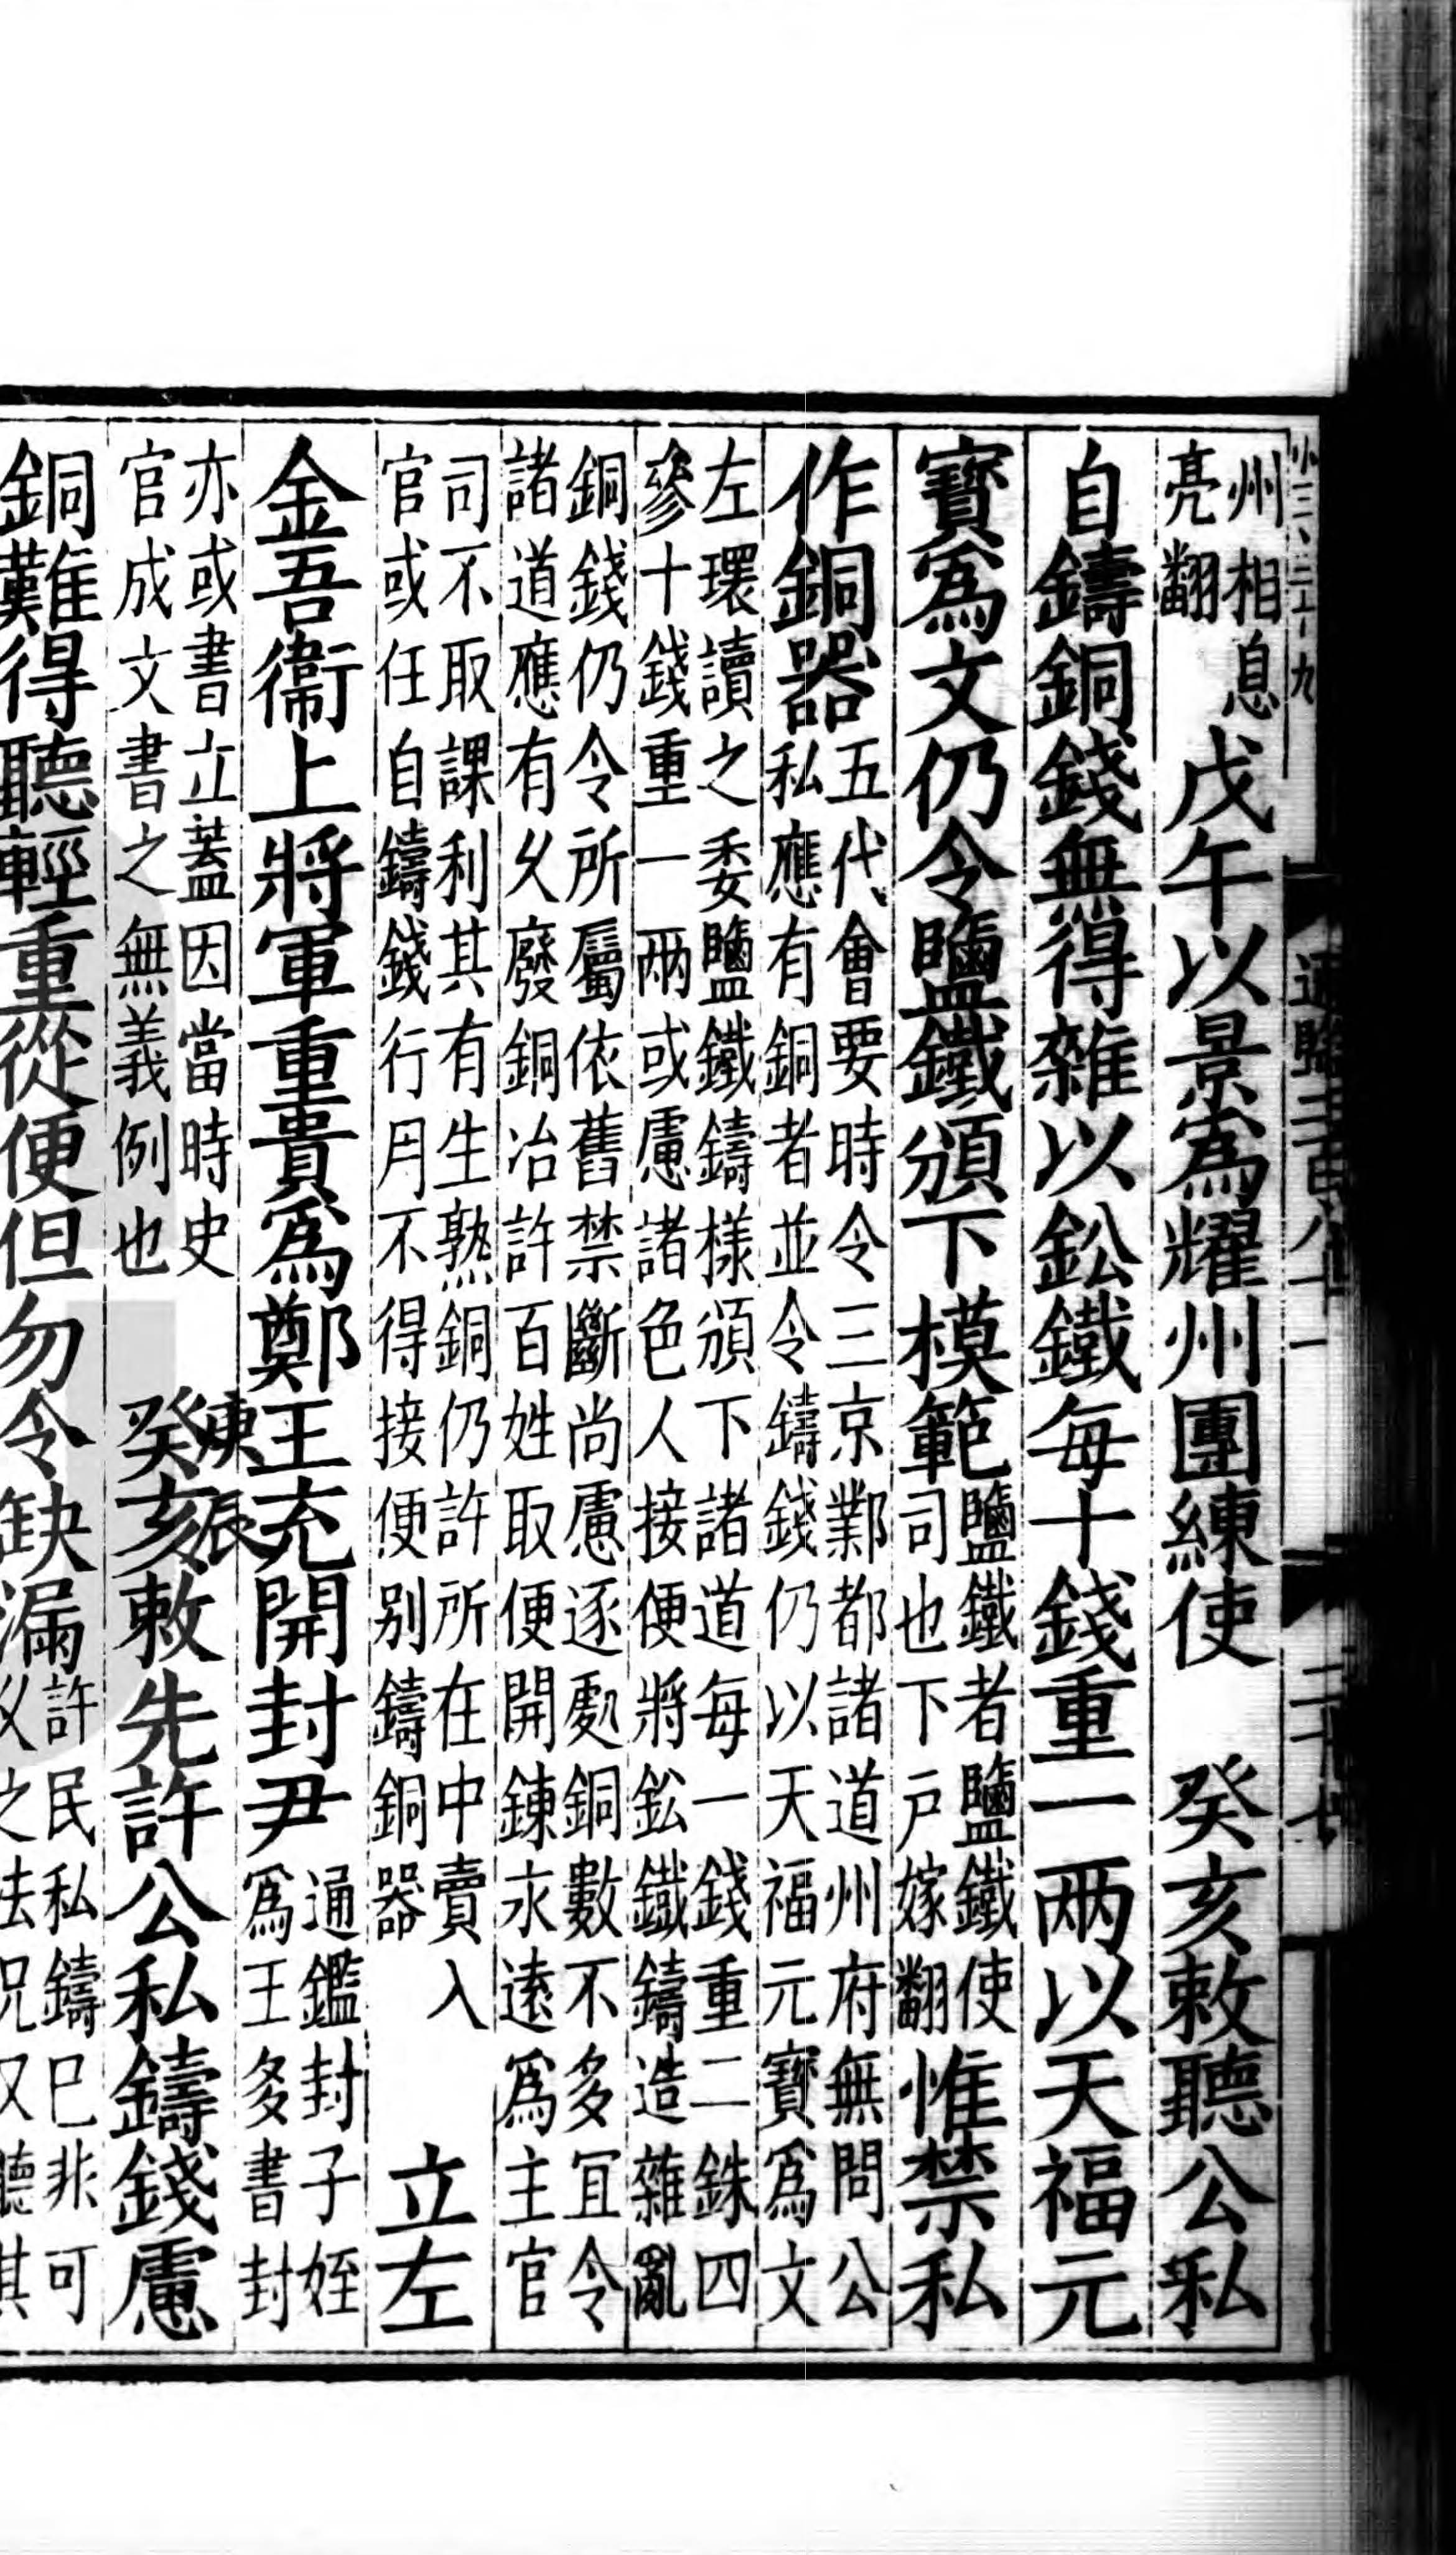 州相息
亮翻
戊午以景為耀州團練使　癸亥敕聽公私
自鑄銅錢無得雜以鈆鐵每十錢重一兩以天福元
寶爲文仍令鹽鐵頒下模範
鹽鐵者鹽鐵使
司也下戸嫁翻
惟禁私
作銅器
五代會要時令三京鄴都諸道州府無問公
私應有銅者並令鑄錢仍以天福元寶爲文
左環讀之委鹽鐵鑄樣頒下諸道每一錢重二銖四
參十錢重一兩或慮諸色人接便將鈆鐵鑄造雜亂
銅錢仍令所屬依舊禁斷尚慮逐處銅數不多宜令
諸道應有久廢銅冶許百姓取便開鍊永遠爲主官
司不取課利其有生熟銅仍許所在中賣入
官或任自鑄錢行用不得接便别鑄銅器
立左
金吾衞上將軍重貴爲鄭王充開封尹
通鑑封子姪
爲王多書封
亦或書立蓋因當時史
官成文書之無義例也
庚辰
癸亥敕先許公私鑄錢慮
銅難得聽輕重從便但勿令缺漏
許民私鑄巳非可
乂之法况又聽其
通鑑二百八十一